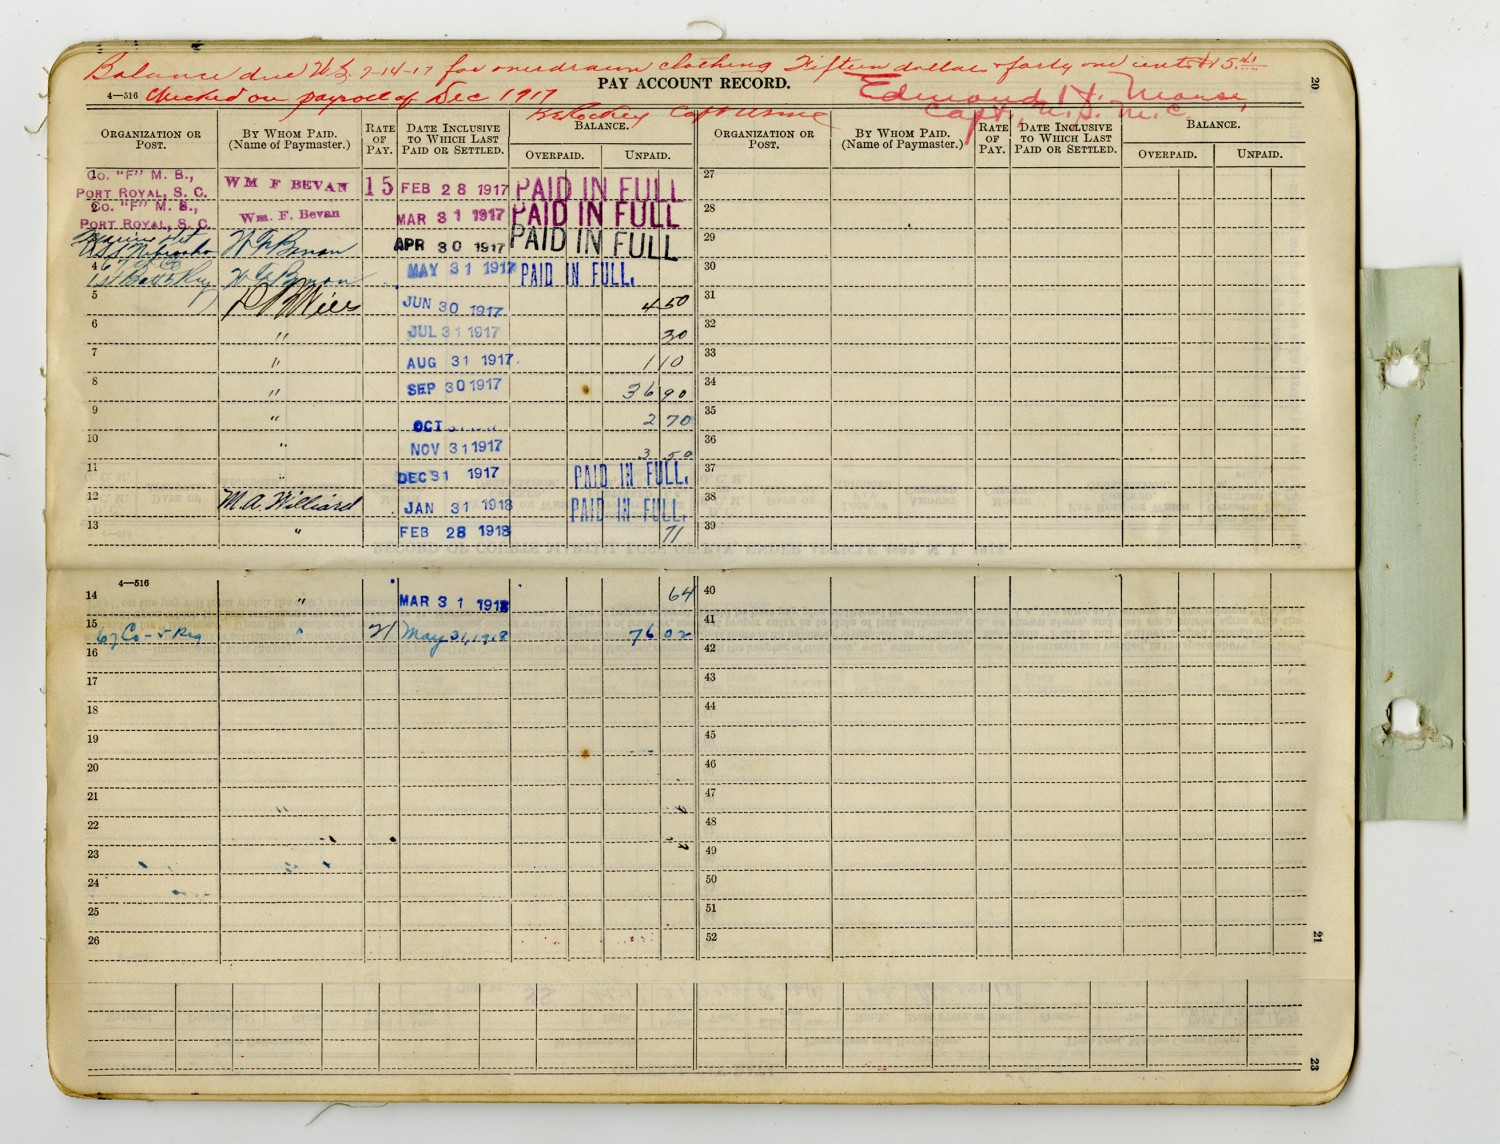 Balance due U.S. 7-14-17 for overdrawn clothing Fifteen dollars & forty one cents $15.41
PAY ACCOUNT RECORD.
20
4—516 Checked on payroll of Dec 1917
Edmond H. Morse,
Capt., U.S.M.C.
Capt USMC
ORGANIZATION OR POST. BY WHOM PAID. (Name of Paymaster.) RATE OF PAY. DATE INCLUSIVE TO WHICH LAST PAID OR SETTLED. BALANCE. OVERPAID. UNPAID.
ORGANIZATION OR POST. BY WHOM PAID. (Name of Paymaster.) RATE OF PAY. DATE INCLUSIVE TO WHICH LAST PAID OR SETTLED. BALANCE. OVERPAID. UNPAID.
1 Co. "F" M. B., PORT ROYAL, S. C. WM F BEVAN 15 FEB 28 1917 PAID IN FULL 27
2 Co. "F" M. B., PORT ROYAL, S. C. Wm. F. Bevan MAR 31 1917 PAID IN FULL 28
Marine Det U.S.S. Nebraska W F Bevan APR 30 1917 PAID IN FULL 29
4 67th Co 1st Batt 5 Reg. W F Bevan MAY 31 1917 PAID IN FULL. 30
5 JUN 30 1917 4 50 31
6 " JUL 31 1917 30 32
7 " AUG 31 1917 1 10 33
8 " SEP 30 1917 36 90 34
9 " OCT 2 70 35
10 " NOV 31 1917 3 50 36
11 " DEC 31 1917 PAID IN FULL. 37
12 M.A. Williard JAN 31 1918 PAID IN FULL. 38
13 " FEB 28 1918 71 39
4—516
14 " MAR 31 1918 64 40
15 67 Co - 5 Reg " 21 May 31, 1918 76 02 41
16 42
17 43
18 44
19 45
20 46
21 47
22 48
23 49
24 50
25 51
26 52
21
23